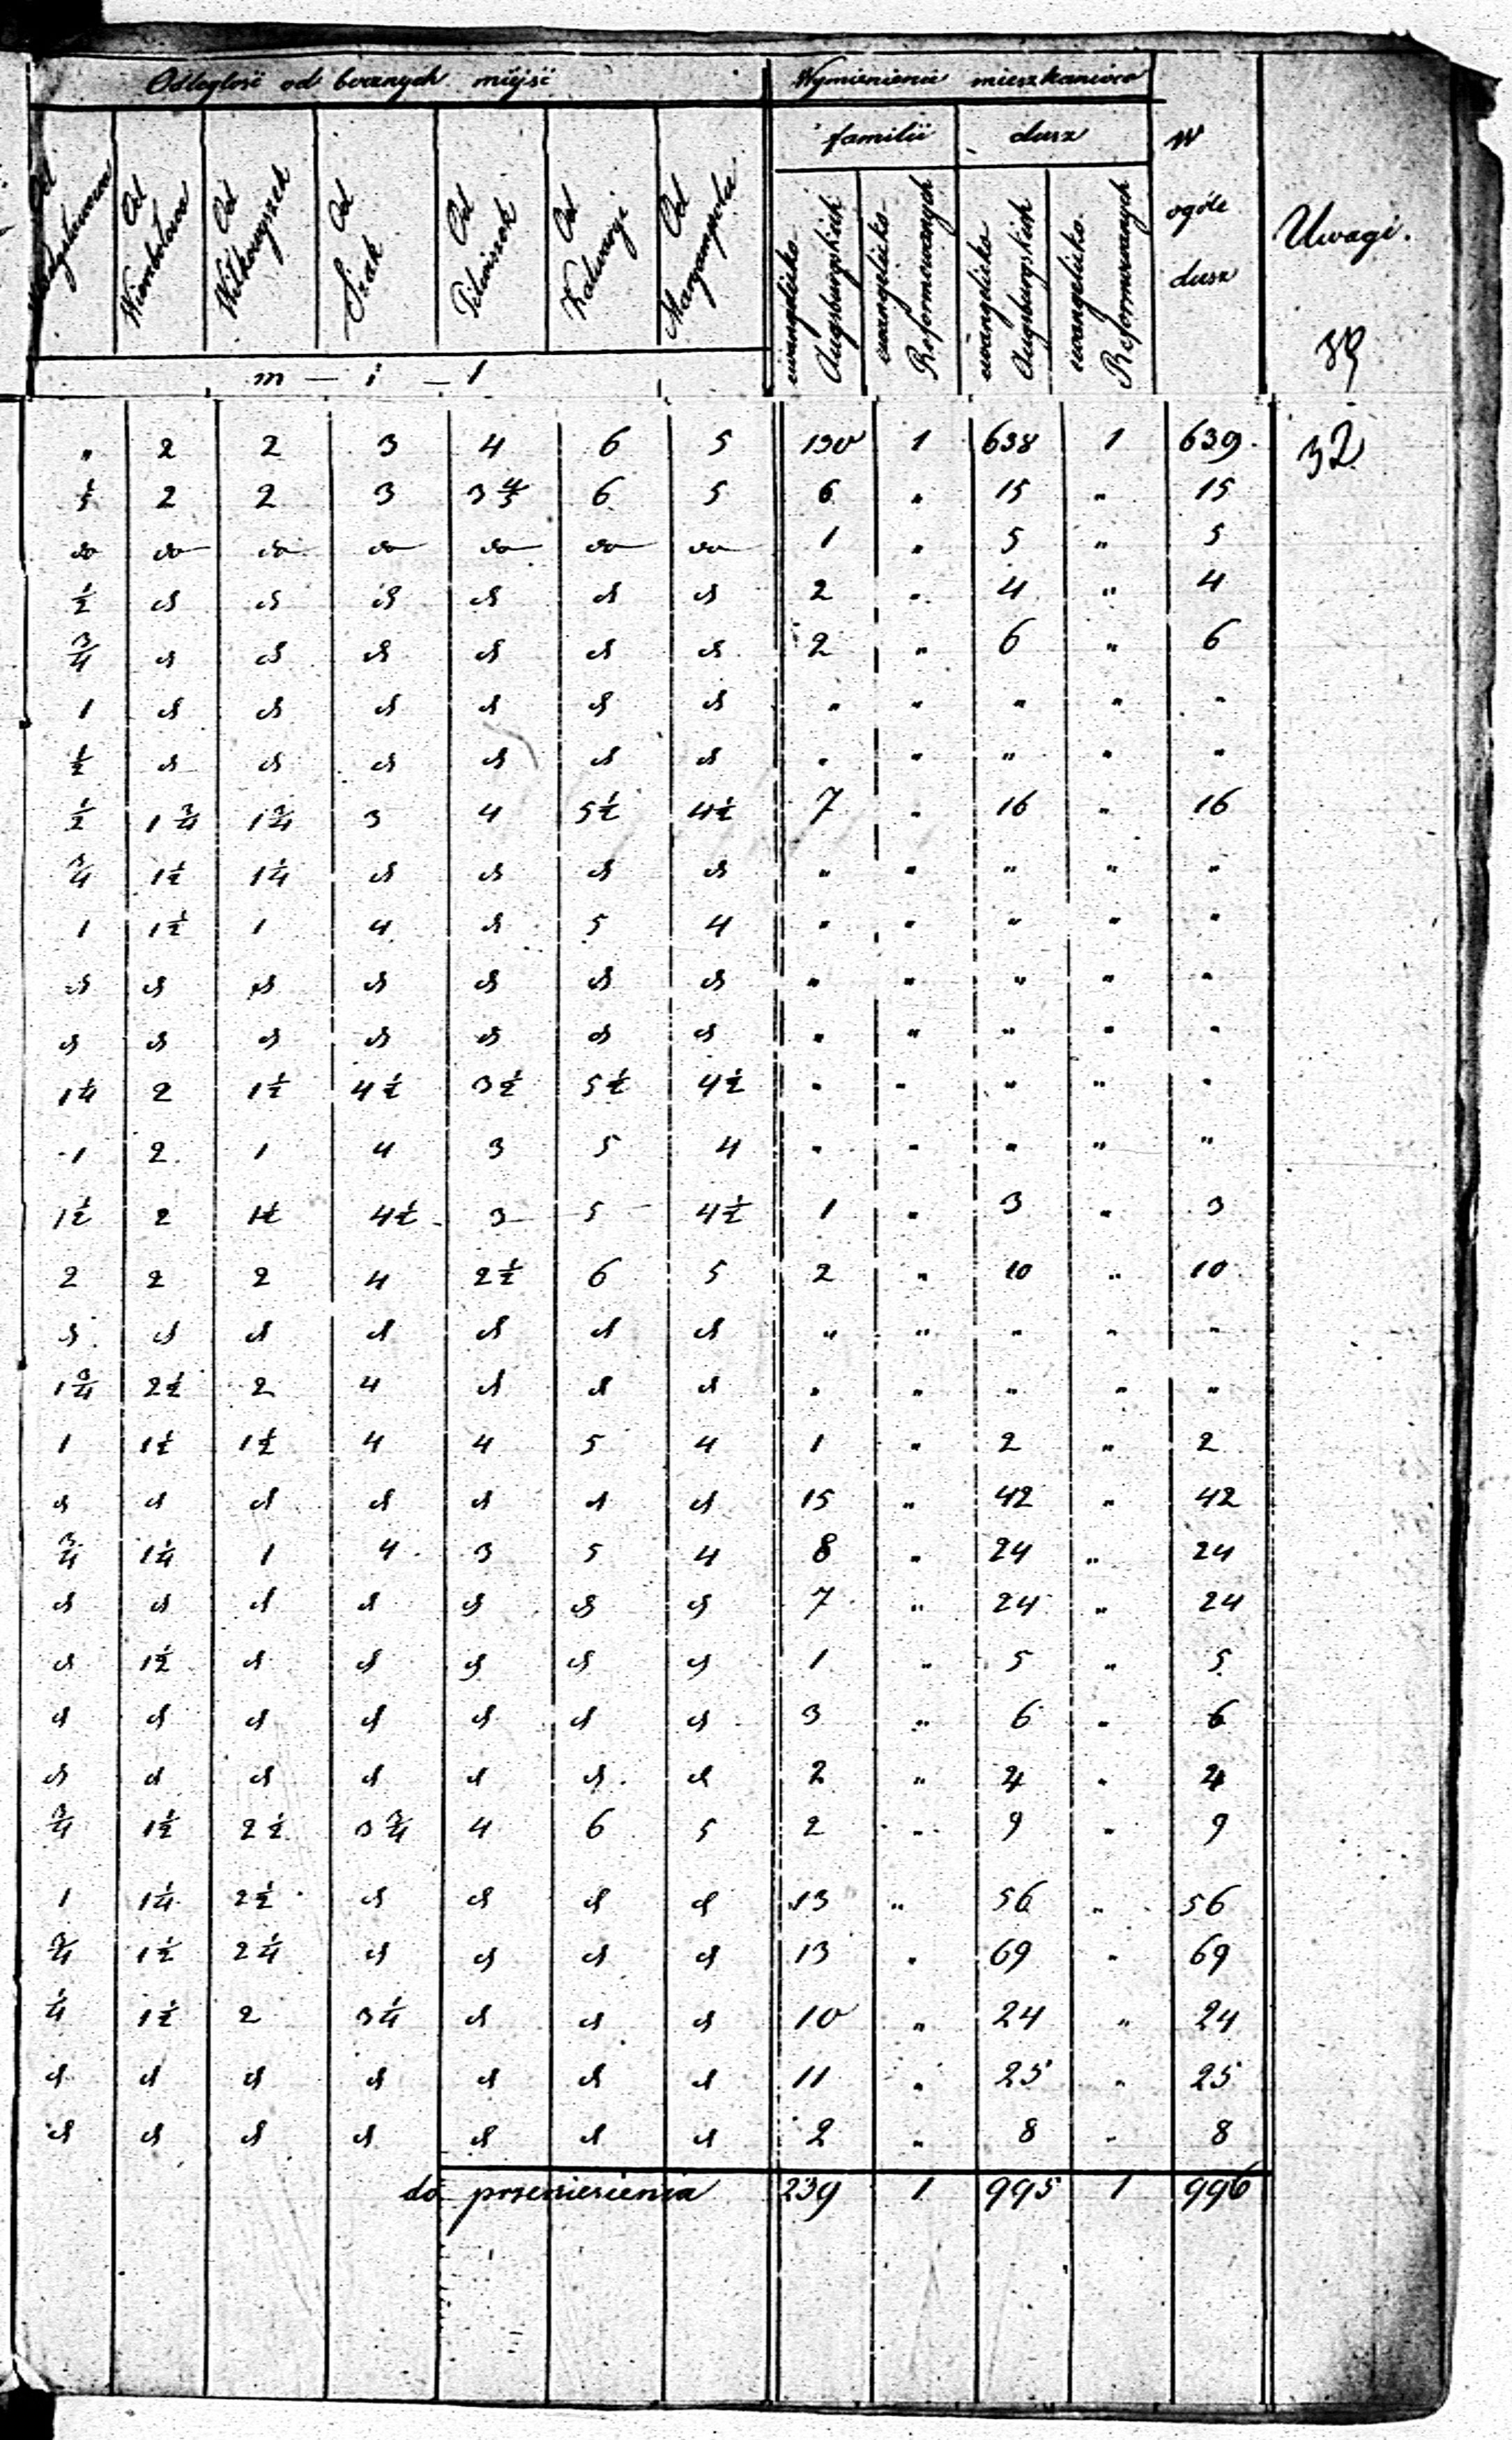 Odległość od bocznych miejsc Wymienienie mieszkańców
familii dusz W ogóle dusz Uwagi.
Od Władysławowa Od Wierzbołowa Od Wiłkowyszek Od Szak Od Pilwiszek Od Kalwaryi Od Maryampola ewangelicko Augsburgskich ewangelicko Reformowanych ewangelicko Augsburgskich ewangelicko Reformowanych
m – i – l
39
32
" 2 2 3 4 6 5 130 1 638 1 639
1/5 2 2 3 3 4/5 6 5 6 " 15 " 15
do do do do do do do 1 " 5 " 5
1/2 d d d d d d 2 " 4 " 4
3/4 d d d d d d 2 " 6 " 6
1 d d d d d d " " " " "
1/2 d d d d d d " " " " "
1/2 1 3/4 1 3/4 3 4 5 1/2 4 1/2 7 " 16 " 16
3/4 1 1/2 1 1/4 d d d d " " " " "
1 1 1/2 1 4 d 5 4 " " " " "
d d d d d d d " " " " "
d d d d d d d " " " " "
1 1/4 2 1 1/2 4 1/2 3 1/2 5 1/2 4 1/2 " " " " "
1 2 1 4 3 5 4 " " " " "
1 1/2 2 1 1/2 4 1/2 3 5 4 1/2 1 " 3 " 3
2 2 2 4 2 1/2 6 5 2 " 10 " 10
d d d d d d d " " " " "
1 3/4 2 1/2 2 4 d d d " " " " "
1 1 1/2 1 1/2 4 4 5 4 1 " 2 " 2
d d d d d d d 15 " 42 " 42
3/4 1 1/4 1 4 3 5 4 8 " 24 " 24
d d d d d d d 7 " 24 " 24
d 1 1/2 d d d d d 1 " 5 " 5
d d d d d d d 3 " 6 " 6
d d d d d d d 2 " 4 " 4
3/4 1 1/2 2 1/2 3 3/4 4 6 5 2 " 9 " 9
1 1 1/4 2 1/2 d d d d 13 " 56 " 56
3/4 1 1/2 2 1/4 d d d d 13 " 69 " 69
1/4 1 1/2 2 3 1/4 d d d 10 " 24 " 24
d d d d d d d 11 " 25 " 25
d d d d d d d 2 " 8 " 8
do przeniesienia 239 1 995 1 996